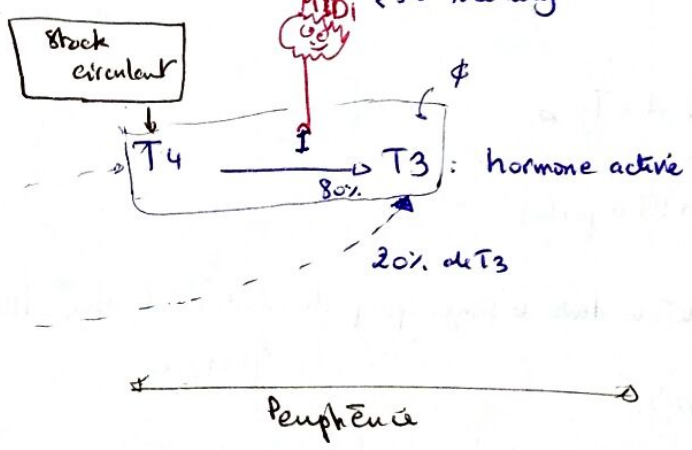 Stock
circulant
T4
I
T3 : hormone active
80%
20% de T3
Périphérie